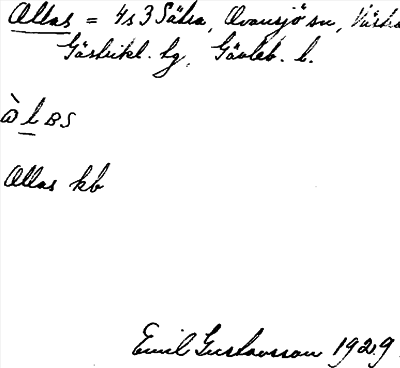 Ollas = 4s3 Sätra, Ovansjö sn, Västra
Gästrikl. tg, Gävleb. l.
ɷ̀ l ʙs
Ollas kb
Emil Gustavsson 1929.